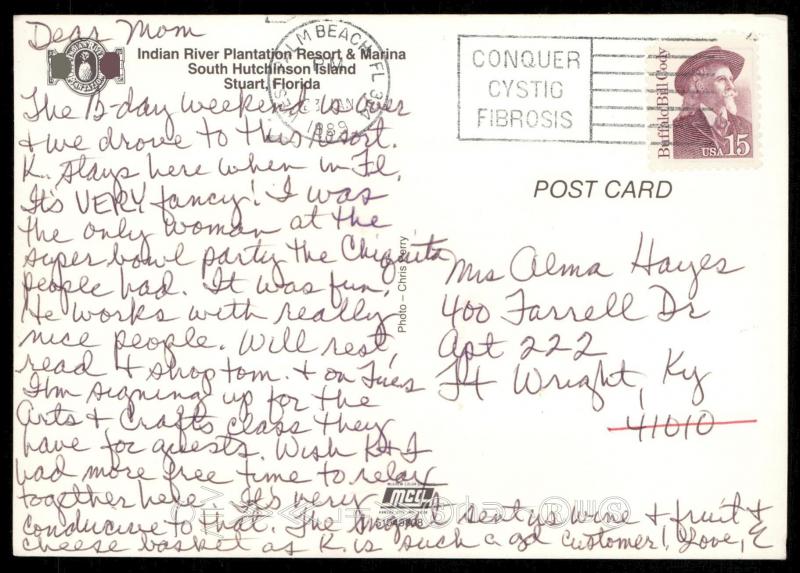 Dear Mom
Indian River Plantation Resort & Marina
South Hutchinson Island
Stuart, Florida
The B-day weekend is over
+ we drove to this resort.
K. stays here when in Fl.
It's VERY fancy! I was
the only woman at the
super bowl party the Chiquita
people had. It was fun.
He works with really
nice people. Will rest,
read + shop tom. + on Tues
I'm signing up for the
Arts + Crafts class they
have for guests. Wish K + I
had more free time to relax
together here. It's very
conducive to that. The mgr sent us wine + fruit +
cheese basket as K. is such a gd customer! Love, E
PALM BEACH, FL
PM
1989
CONQUER
CYSTIC
FIBROSIS
Buffalo Bill Cody
USA 15
POST CARD
Photo – Chris Perry
Mrs Alma Hayes
400 Farrell Dr
Apt 222
Ft Wright, Ky
41010
mcg